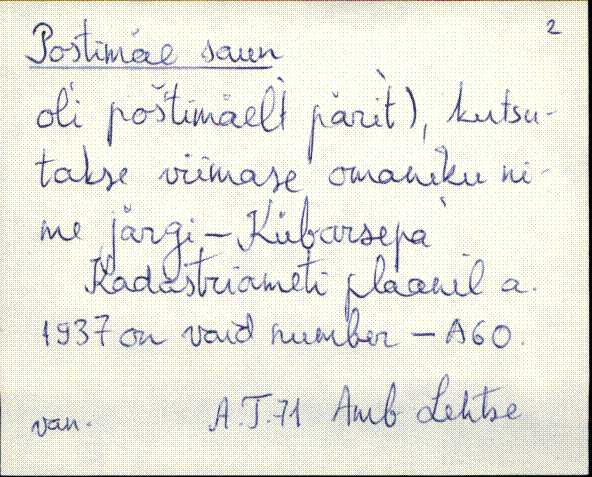 2
Postimäe saun
oli poštimäelt pärit), kutsu-
takse viimase omaniku ni-
me järgi – Kübarsepa
Kadastriameti plaanil a.
1937 on vaid number – A60.
van. A.T.71 Amb Lehtse